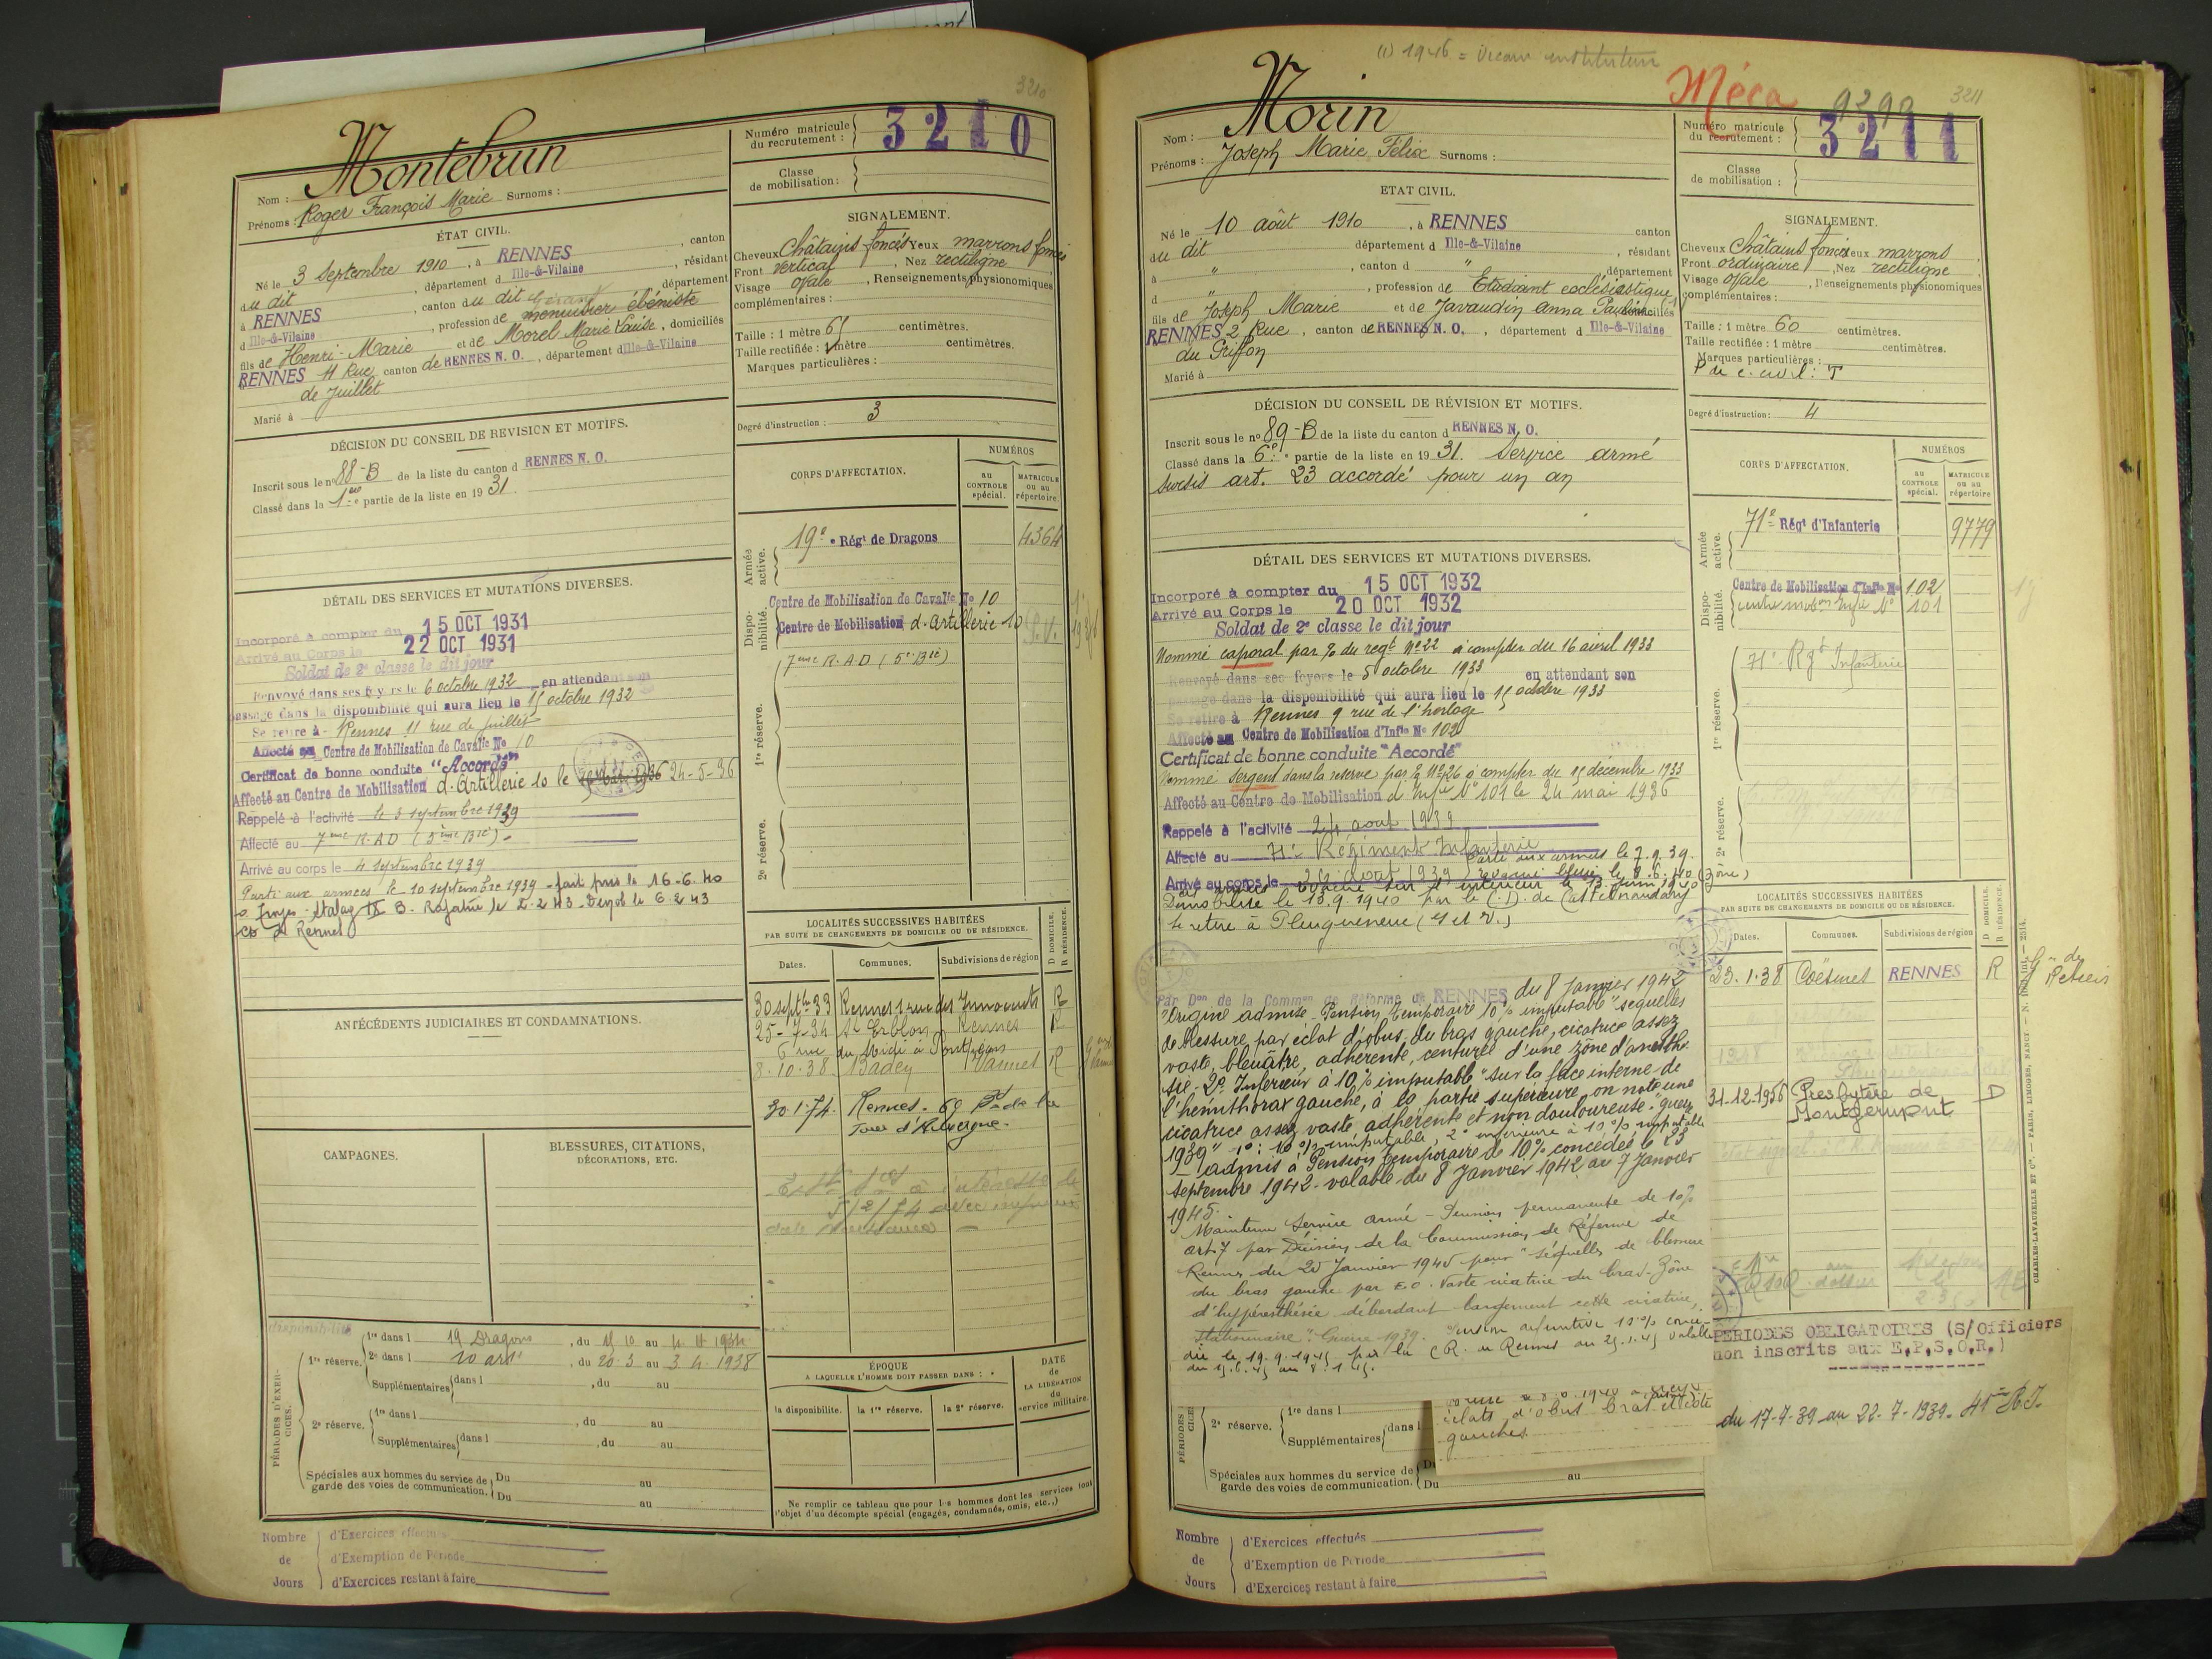 3210
Montebrun
Nom :
Prénoms : Roger François Marie Surnoms :
Numéro matricule du recrutement : 3210
Classe de mobilisation :
ÉTAT CIVIL.
Né le 3 septembre 1910, à RENNES, canton
du dit, département d Ille-&-Vilaine, résidant
à RENNES, canton du dit, département
d Ille-&-Vilaine, profession de menuisier ébéniste
fils de Henri-Marie et de Morel Marie Louise, domiciliés
RENNES 11 Rue canton de RENNES N. O., département d Ille-&-Vilaine
de Juillet
Marié à
SIGNALEMENT.
Cheveux Châtains foncés Yeux marrons foncés
Front vertical, Nez rectiligne
Visage ovale, Renseignements physionomiques
complémentaires :
Taille : 1 mètre 65 centimètres.
Taille rectifiée : 1 mètre centimètres.
Marques particulières :
Degré d'instruction : 3
DÉCISION DU CONSEIL DE REVISION ET MOTIFS.
Inscrit sous le n° 88-B de la liste du canton d RENNES N. O.
Classé dans la 1ère partie de la liste en 1931.
CORPS D'AFFECTATION.
NUMÉROS
au CONTROLE spécial.
MATRICULE ou au répertoire.
Armée active.
19e Régt de Dragons 4364
Disponibilité.
Centre de Mobilisation de Cavalie No 10
Centre de Mobilisation d'Artillerie 10
1re réserve.
7eme R.A.D (5e Bie)
2e réserve.
DÉTAIL DES SERVICES ET MUTATIONS DIVERSES.
Incorporé à compter du 15 OCT 1931
Arrivé au Corps le 22 OCT 1931
Soldat de 2e classe le dit jour
Renvoyé dans ses foyers le 6 octobre 1932 en attendant son
passage dans la disponibilité qui aura lieu le 15 octobre 1932
Se retire à Rennes 11 rue de Juillet
Affecté au Centre de Mobilisation de Cavalie No 10
Certificat de bonne conduite "Accordé"
Affecté au Centre de Mobilisation d'Artillerie 10 le 24-5-36
Rappelé à l'activité le 3 septembre 1939
Affecté au 7eme R.A.D (5ème Bie)
Arrivé au corps le 4 septembre 1939
Parti aux armées le 10 septembre 1939 - fait pris le 16-6-40
Stalag IX B. Rapatrié le 2-2-43 - le 6-2-43
Rennes
LOCALITÉS SUCCESSIVES HABITÉES
PAR SUITE DE CHANGEMENTS DE DOMICILE OU DE RÉSIDENCE.
Dates. Communes. Subdivisions de région D DOMICILE. R RÉSIDENCE.
30 septbre 33 Rennes 1 rue des Innocents R
25-7-34 St Erblon Rennes R
6 rue du Midi à Pontpéan
8.10.38 Baden Vannes R
30.1.74. Rennes. 69
Tour d'Auvergne.
ANTÉCÉDENTS JUDICIAIRES ET CONDAMNATIONS.
CAMPAGNES.
BLESSURES, CITATIONS,
DÉCORATIONS, ETC.
PÉRIODES D'EXERCICES.
disponibilité
1re réserve. 1re dans l 19 Dragons, du 15 10 au 4 11 1934
2e dans l 10 art, du 20.3 au 3 4. 1938
Supplémentaires dans l, du au
2e réserve. 1re dans l, du au
Supplémentaires dans l, du au
Spéciales aux hommes du service de garde des voies de communication. Du au
Du au
ÉPOQUE
A LAQUELLE L'HOMME DOIT PASSER DANS :
la disponibilité. la 1re réserve. la 2e réserve.
DATE de LA LIBÉRATION du service militaire.
Ne remplir ce tableau que pour les hommes dont les services font
l'objet d'un décompte spécial (engagés, condamnés, omis, etc.,)
Nombre de Jours
d'Exercices effectués
d'Exemption de Période
d'Exercices restant à faire
(1) 1946 = Vicaire instituteur
Méca
3211
Nom : Morin
Prénoms : Joseph Marie Félix Surnoms :
Numéro matricule du recrutement : 3211
Classe de mobilisation :
ETAT CIVIL.
Né le 10 août 1910, à RENNES canton
du dit département d Ille-&-Vilaine, résidant
à ", canton d ", département
d ", profession de Etudiant ecclésiastique
fils de Joseph Marie et de Javaudin Anna Pauline domiciliés
RENNES 2 Rue, canton de RENNES N. O., département d Ille-&-Vilaine
du Griffon
Marié à
SIGNALEMENT.
Cheveux Châtains foncés Yeux marrons
Front ordinaire, Nez rectiligne
Visage ovale, Renseignements physionomiques
complémentaires :
Taille : 1 mètre 60 centimètres.
Taille rectifiée : 1 mètre centimètres.
Marques particulières :
P du c. civil : T
Degré d'instruction : 4
DÉCISION DU CONSEIL DE RÉVISION ET MOTIFS.
Inscrit sous le n° 89-B de la liste du canton d RENNES N. O.
Classé dans la 6e partie de la liste en 1931. Service armé
sursis art. 23 accordé pour un an
CORPS D'AFFECTATION.
NUMÉROS
au CONTROLE spécial.
MATRICULE ou au répertoire
Armée active.
71e Régt d'Infanterie 9779
Disponibilité.
Centre de Mobilisation d'Infie No 102
Centre mobon Infie No 101
1re réserve.
71e Rgt Infanterie
2e réserve.
DÉTAIL DES SERVICES ET MUTATIONS DIVERSES.
Incorporé à compter du 15 OCT 1932
Arrivé au Corps le 20 OCT 1932
Soldat de 2e classe le dit jour
Nommé caporal par % du regt No 22 à compter du 16 avril 1933
Renvoyé dans ses foyers le 5 octobre 1933 en attendant son
passage dans la disponibilité qui aura lieu le 15 octobre 1933
Se retire à Rennes 9 rue de l'horloge
Affecté au Centre de Mobilisation d'Infie No 102
Certificat de bonne conduite "Accordé"
Nommé Sergent dans la réserve par % No 26 à compter du 15 décembre 1933
Affecté au Centre de Mobilisation d'Infie No 101 le 24 mai 1936
Rappelé à l'activité 24 aout 1939
Affecté au 71e Régiment Infanterie
Parti aux armées le 7.9.39.
Arrivé au corps le aout 1939 le 8.6.40
évacué sur l'intérieur le 13 juin 1940
Démobilisé le 13.9.1940 par le C.D. de Castelnaudary
Se retire à Pleugueneuc (I et V.)
Par Don de la Common de Réforme de RENNES du 8 Janvier 1942
"Origine admise Pension temporaire 10% imputable "sequelles
de blessure par éclat d'obus, du bras gauche, cicatrice assez
vaste, bleuâtre, adhérente, centurée d'une zône d'anesthé-
sie - 2° Inférieur à 10% imputable "sur la face interne de
l'hémithorax gauche, à la partie supérieure on note une
cicatrice assez vaste adhérente et non douloureuse." guerre
1939" 1°: 10% imputable, 2° inférieure à 10% imputable
admis à Pension temporaire de 10% concédée le 23
septembre 1942 - valable du 8 Janvier 1942 au 7 Janvier
1945.
Maintenu Service armé - Pension permanente de 10%
art. 7 par Décision de la Commission de Réforme de
Rennes du 25 Janvier 1945 pour "séquelles de blessure
du bras gauche par E.O. Vaste cicatrice du bras. Zône
d'hypéresthésie débordant largement cette cicatrice,
Stationnaire". Guerre 1939. Pension définitive 10%
le 19.9.1945 par la CR. de Rennes du 25.1.45 valable
LOCALITÉS SUCCESSIVES HABITÉES
PAR SUITE DE CHANGEMENTS DE DOMICILE OU DE RÉSIDENCE.
Dates. Communes. Subdivisions de région D DOMICILE. R RÉSIDENCE.
23.1.38 Coësmes RENNES R
Gie de Retiers
31-12-1956 Presbytère de Montgermont D
CHARLES-LAVAUZELLE ET Cie. — PARIS, LIMOGES, NANCY
PERIODES OBLIGATOIRES (S/Officiers
non inscrits aux E.P.S.O.R.)
du 17-7-39 au 22-7-1939. 41e R.I.
éclats d'obus bras et côté
gauches.
PÉRIODES
2e réserve. 1re dans l
Supplémentaires dans l
Spéciales aux hommes du service de garde des voies de communication. Du au
Du
Nombre de Jours
d'Exercices effectués
d'Exemption de Période
d'Exercices restant à faire